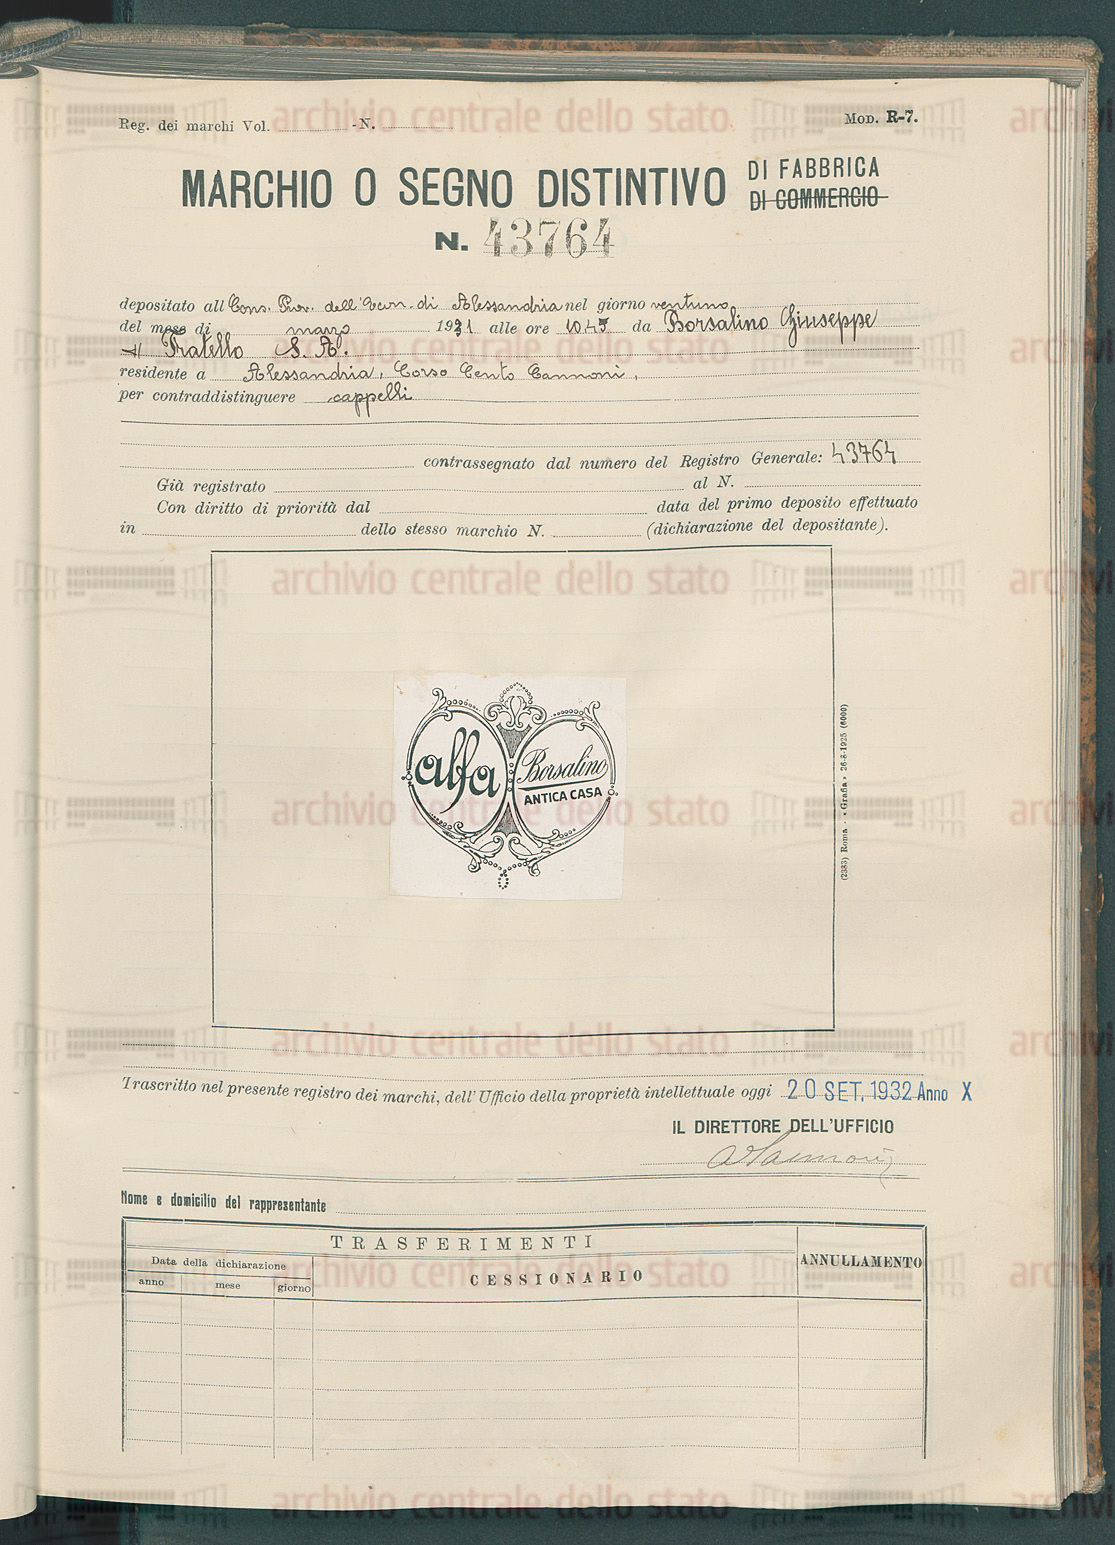 Reg. dei marchi Vol. - N. Mod. R-7.
MARCHIO O SEGNO DISTINTIVO DI FABBRICA
DI COMMERCIO
N. 43764
depositato all Cons. Prov. dell'Econ. di Alessandria nel giorno ventuno
del mese di marzo 1931 alle ore 10.45 da Borsalino Giuseppe
Fratello S. A.
residente a Alessandria, Corso Cento Cannoni,
per contraddistinguere cappelli
contrassegnato dal numero del Registro Generale: 43764
Già registrato al N.
Con diritto di priorità dal data del primo deposito effettuato
in dello stesso marchio N. (dichiarazione del depositante).
alfa
Borsalino
ANTICA CASA
(2383) Roma - «Grafia» 26-8-1925 (6000)
Trascritto nel presente registro dei marchi, dell'Ufficio della proprietà intellettuale oggi 20 SET. 1932 Anno X
IL DIRETTORE DELL'UFFICIO
Nome e domicilio del rappresentante
TRASFERIMENTI
ANNULLAMENTO
Data della dichiarazione
CESSIONARIO
anno mese giorno
archivio centrale dello stato